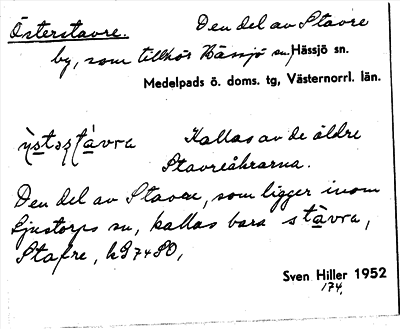 Österstavre. Den del av Stavre
by, som tillhör Hässjö sn, Hässjö sn.
Medelpads ö. doms. tg, Västernorrl. län.
Kallas av de äldre
Stavreåkrarna.
Den del av Stavre, som ligger inom
Ljustorps sn, kallas bara stàvra,
Stafre,
Sven Hiller 1952
174.